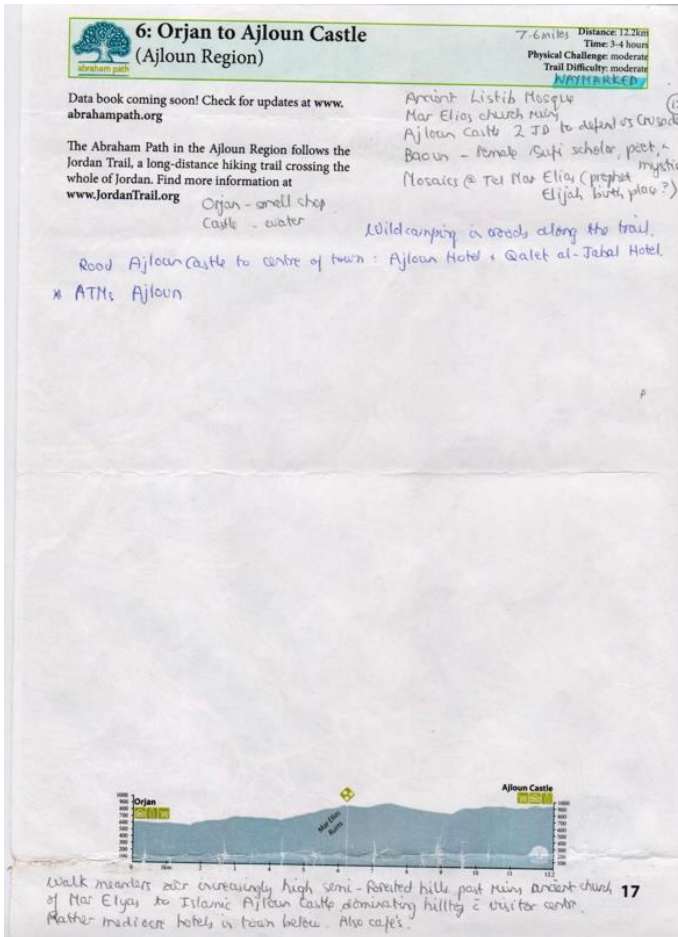 abraham path
6: Orjan to Ajloun Castle
(Ajloun Region)
7.6 miles Distance: 12.2km
Time: 3-4 hours
Physical Challenge: moderate
Trail Difficulty: moderate
WAYMARKED
Data book coming soon! Check for updates at www.
abrahampath.org
The Abraham Path in the Ajloun Region follows the
Jordan Trail, a long-distance hiking trail crossing the
whole of Jordan. Find more information at
www.JordanTrail.org
Orjan - small shop
Castle - water
Ancient Listib Mosque
Mar Elias church ruins
Ajloun Castle 2 JD to defend vs Crusade
Baoun - female Sufi scholar, poet,
mystic
Mosaics @ Tel Mar Elias (prophet
Elijah birth place?)
Wildcamping in woods along the trail.
Road Ajloun Castle to centre of town: Ajloun Hotel & Qalet al-Jabal Hotel.
* ATMs Ajloun
Orjan
Ajloun Castle
Mar Elias
Ruins
1000
900
800
700
600
500
400
300
200
100
1000
900
800
700
600
500
400
300
200
100
0 1km 2 3 4 5 6 7 8 9 10 11 12.2
Walk meanders over increasingly high semi-forested hills past ruins ancient church
of Mar Elyas to Islamic Ajloun Castle dominating hilltop c̄ visitor centre.
Rather mediocre hotels in town below. Also cafe's.
17